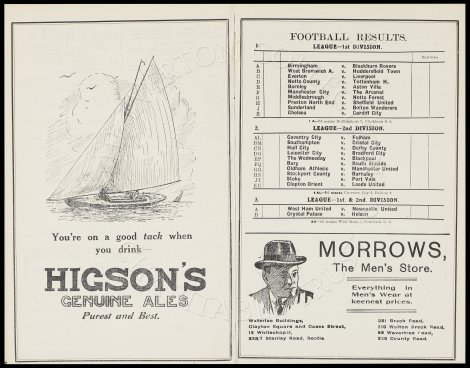 You're on a good tack when
you drink—
HIGSON'S
GENUINE ALES
Purest and Best.
FOOTBALL RESULTS.
1. LEAGUE—1st DIVISION.
A Birmingham v. Blackburn Rovers
B West Bromwich A. v. Huddersfield Town
C Everton v. Liverpool
D Notts County v. Tottenham H.
E Burnley v. Aston Villa
F Manchester City v. The Arsenal
G Middlesbrough v. Notts Forest
H Preston North End v. Sheffield United
J Sunderland v. Bolton Wanderers
K Chelsea v. Cardiff City
2. LEAGUE—2nd DIVISION.
AL Coventry City v. Fulham
BM Southampton v. Bristol City
CN Hull City v. Derby County
DO Leicester City v. Bradford City
EP The Wednesday v. Blackpool
FQ Bury v. South Shields
GR Oldham Athletic v. Manchester United
HS Stockport County v. Barnsley
JT Stoke v. Port Vale
KU Clapton Orient v. Leeds United
3. LEAGUE—1st & 2nd DIVISION.
A West Ham United v. Newcastle United
B Crystal Palace v. Nelson
MORROWS,
The Men's Store.
Everything in
Men's Wear at
keenest prices.
Waterloo Buildings,
Clayton Square and Cases Street,
13 Whitechapel,
35&7 Stanley Road, Bootle.
281 Breck Road,
210 Walton Breck Road,
86 Wavertree Road,
216 County Road.